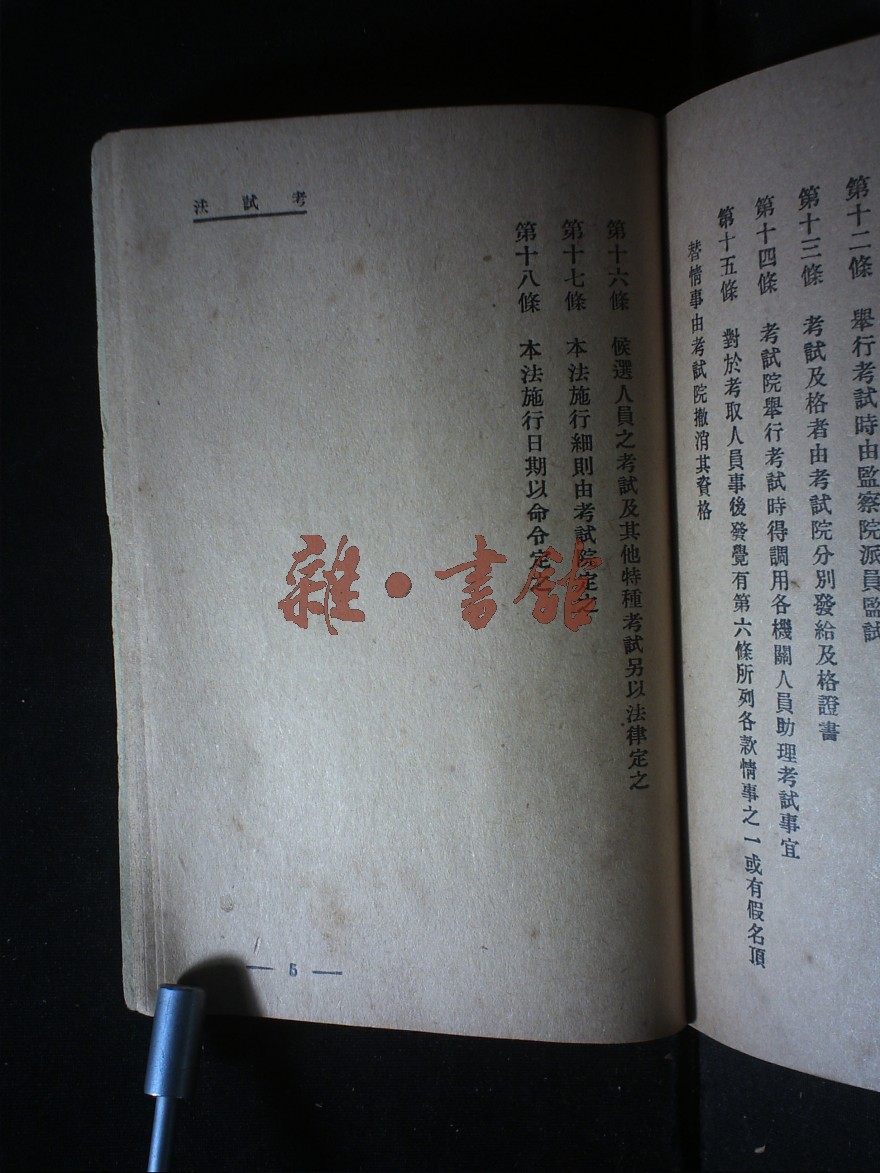 第十二條　舉行考試時由監察院派員監試
第十三條　考試及格者由考試院分別發給及格證書
第十四條　考試院舉行考試時得調用各機關人員助理考試事宜
第十五條　對於考取人員事後發覺有第六條所列各款情事之一或有假名頂
替情事由考試院撤消其資格
第十六條　候選人員之考試及其他特種考試另以法律定之
第十七條　本法施行細則由考試院定之
第十八條　本法施行日期以命令定之
考試法
— 5 —
雜·書館